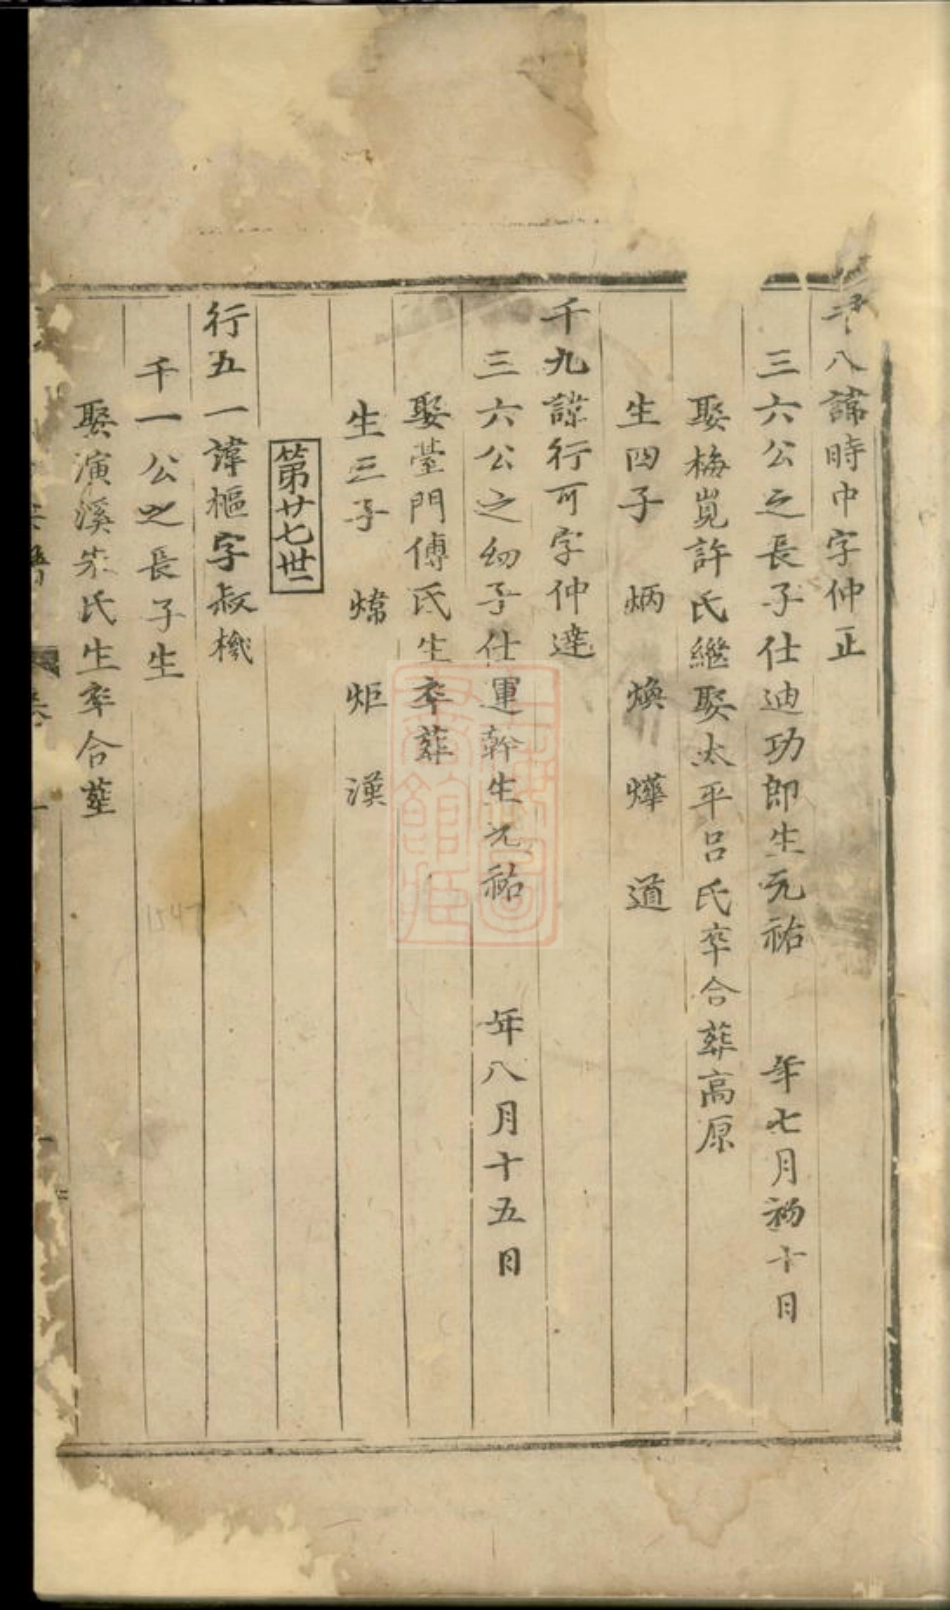 千八諱時中字仲正
三六公之長子仕迪功郎生元祐 年七月初十日
娶梅峴許氏繼娶太平呂氏卒合葬高原
生四子 炳 煥 燁 道
千九諱行可字仲達
三六公之幼子仕運幹生元祐 年八月十五日
娶臺門傅氏生卒葬
生三子 煒 炬 漢
第廿七世
行五一諱樞字叔機
千一公之長子生
娶演溪朱氏生卒合葬